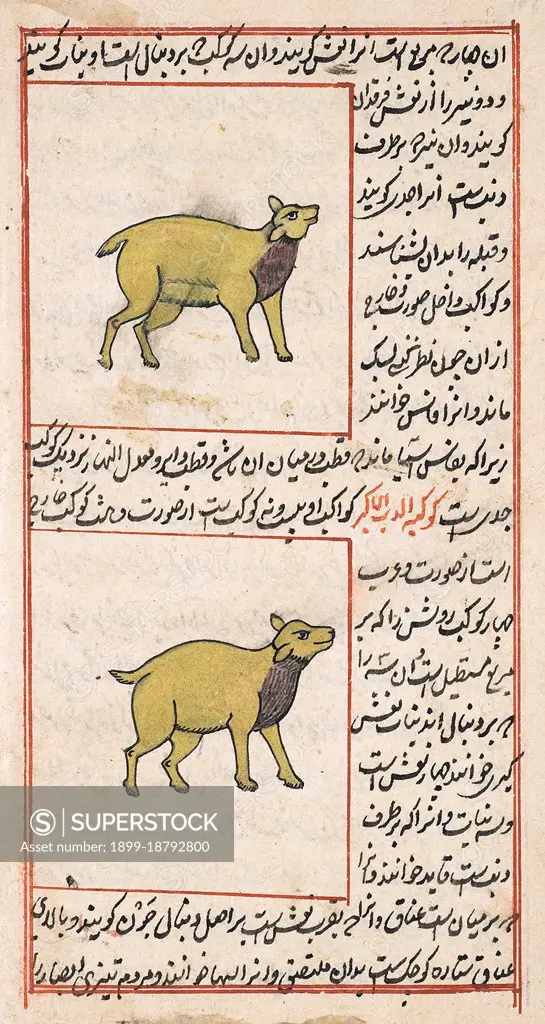 ان چهار که مربع است انرا نعش کویند و ان سه کوکب که بر دنبال است او بنات کویند
و دو نیر را از نعش فرقدان
کویند و ان نیر که بر طرف
دنب است انرا جدی کویند
و قبله را بدان شناسند
و کواکب داخل صورت و خارج
از ان چون نظر کنی بسمک
ماند و انرا فاس خوانند
زیرا که بفاس اسیا ماند و قطب در میان ان باشد و قطب دایره معدل النهار نزدیک کوکب
جدی است کوکبه الدب الاکبر کواکب او بیست و نه کوکب است از صورت و هشت کوکب خارج
است از صورت و عرب
چهار کوکب روشن را که بر
مربع مستطیل است و ان سه را
که بر دنبال اند بنات نعش
کبری خوانند چهار نعش است
و سه بنات و انرا که بر طرف
دنب است قاید خوانند و انرا
که بر میان است عناق و انرا که بقرب نعش است بر اصل دنبال جون کویند و بالای
عناق ستاره کوچک است بدان ملتصق و انرا سها خوانند و مردم تیزی ابصار را
SUPERSTOCK
Asset number: 1899-18792800